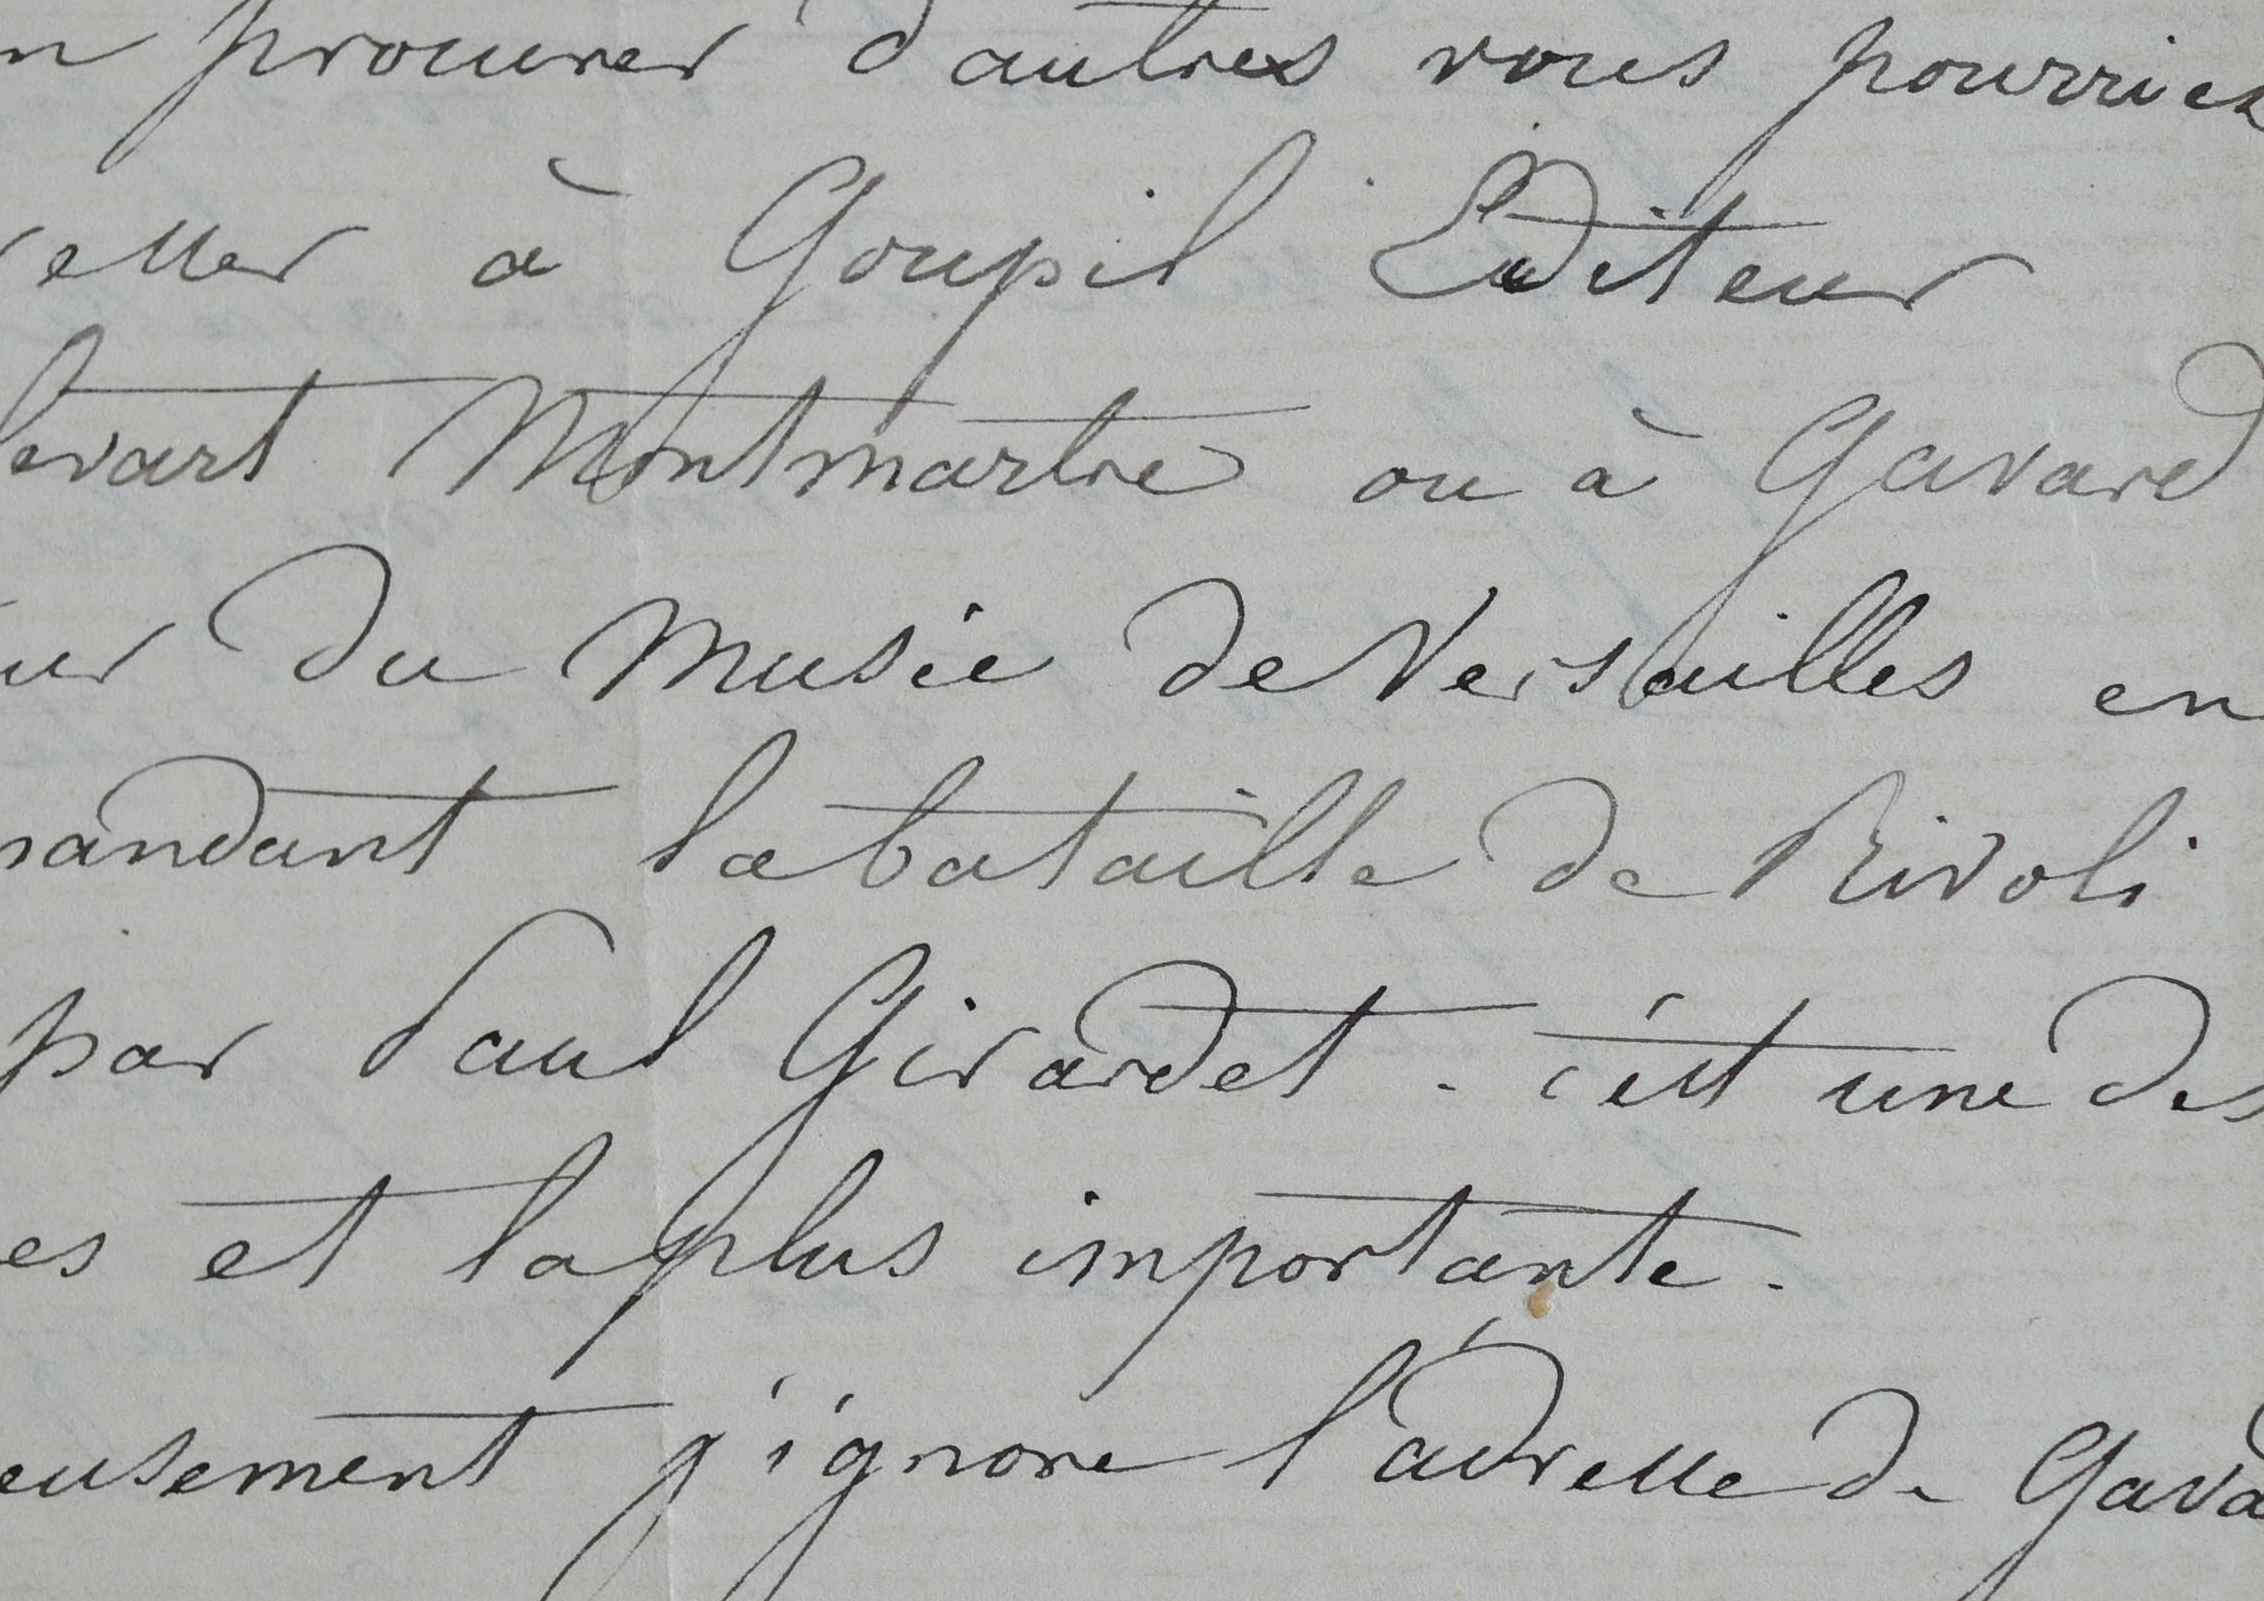 n procurer d'autres vous pourriez
resser à Goupil Editeur
levart Montmartre ou à Gavard
eur du Musée de Versailles en
mandant la bataille de Rivoli
par Paul Girardet. c'est une des
es et la plus importante.
eusement j'ignore l'adresse de Gava